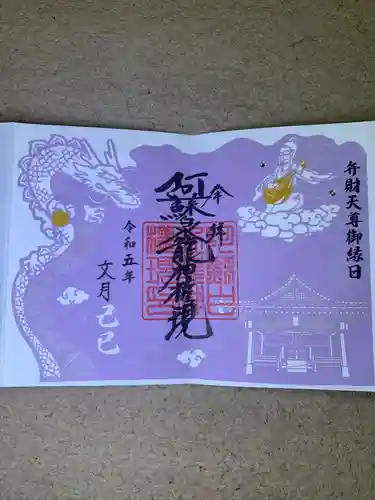 弁財天尊御縁日
奉拝
阿蘇泉龍神権現
令和五年
文月
己巳